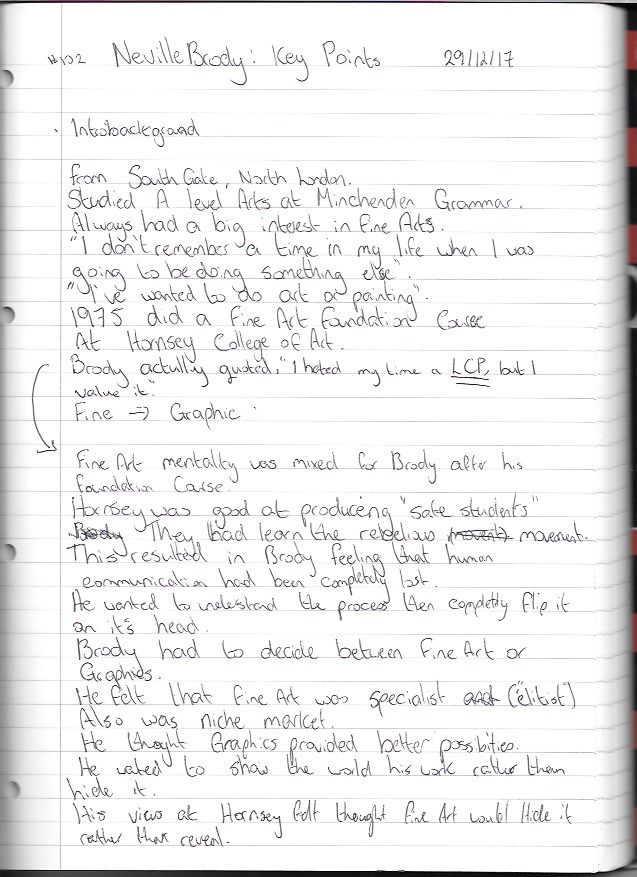 #102 Neville Brody: Key Points 29/12/17
· Intro background
from South Gate, North London.
Studied A level Arts at Minchenden Grammar.
Always had a big interest in Fine Arts.
"I don't remember a time in my life when I was
going to be doing something else".
"I've wanted to do art or painting".
1975 did a Fine Art Foundation Course
At Hornsey College of Art.
Brody actully quoted, "I hated my time a LCP, but I
value it."
Fine → Graphic
Fine Art mentality was mixed for Brody after his
foundation Course.
Hornsey was good at producing "safe students"
Brody They had learn the rebelious movement.
This resulted in Brody feeling that human
communication had been completely lost.
He wanted to understand the process then completly flip it
on it's head.
Brody had to decide between Fine Art or
Graphics.
He felt that Fine Art was specialist ("elitist")
Also was niche market.
He thought Graphics provided better possibities.
He wated to show the world his work rather then
hide it.
His views at Hornsey felt thought Fine Art would Hide it
rather than reveal.